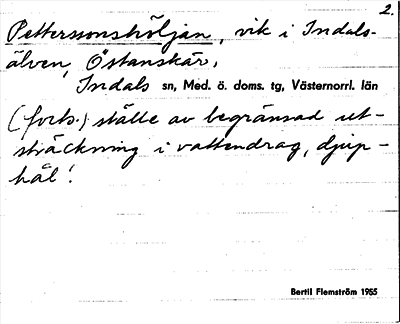 2.
Petterssonshöljan, vik i Indals-
älven, Östanskär,
Indals sn, Med. ö. doms. tg, Västernorrl. län
(forts.) ställe av begränsad ut-
sträckning i vattendrag, djup-
hål!
Bertil Flemström 1955